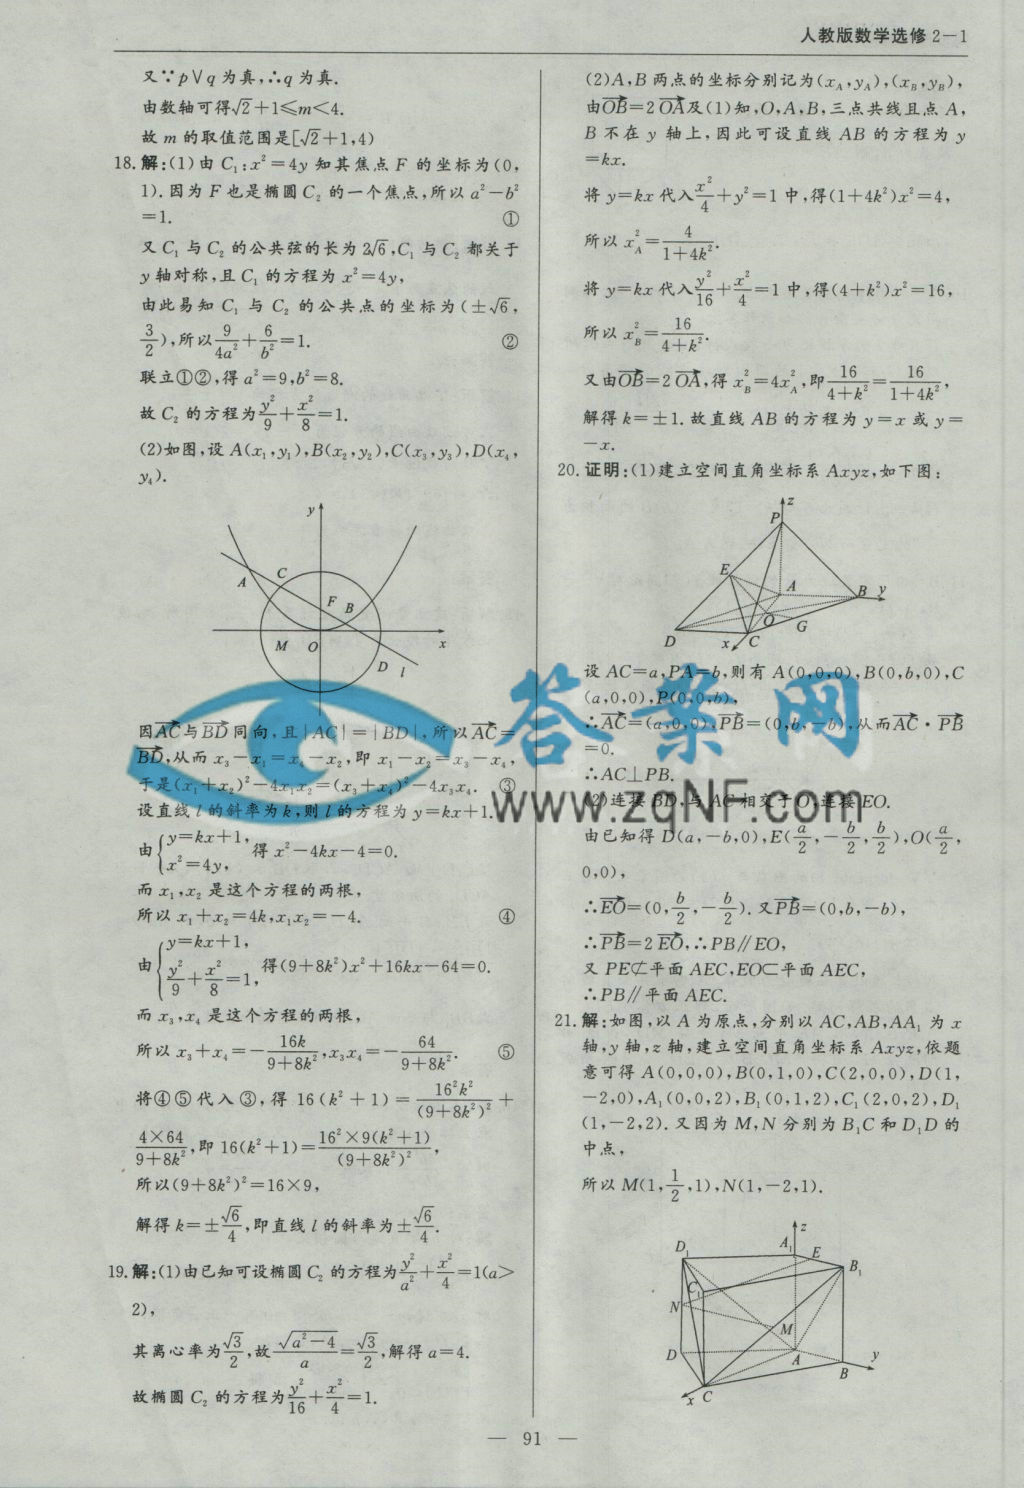 人教版数学选修2—1
又∵p∨q为真,∴q为真.
由数轴可得√2+1≤m<4.
故m的取值范围是[√2+1,4)
18.解:(1)由C₁:x²=4y知其焦点F的坐标为(0,
1).因为F也是椭圆C₂的一个焦点,所以a²-b²
=1. ①
又C₁与C₂的公共弦的长为2√6,C₁与C₂都关于
y轴对称,且C₁的方程为x²=4y,
由此易知C₁与C₂的公共点的坐标为(±√6,
3/2),所以9/4a²+6/b²=1. ②
联立①②,得a²=9,b²=8.
故C₂的方程为y²/9+x²/8=1.
(2)如图,设A(x₁,y₁),B(x₂,y₂),C(x₃,y₃),D(x₄,
y₄).
y
A C F B
M O x
D l
因AC→与BD→同向,且|AC|=|BD|,所以AC→=
BD→,从而x₃-x₁=x₄-x₂,即x₁-x₂=x₃-x₄,
于是(x₁+x₂)²-4x₁x₂=(x₃+x₄)²-4x₃x₄. ③
设直线l的斜率为k,则l的方程为y=kx+1.
由{y=kx+1,
x²=4y, 得x²-4kx-4=0.
而x₁,x₂是这个方程的两根,
所以x₁+x₂=4k,x₁x₂=-4. ④
由{y=kx+1,
y²/9+x²/8=1, 得(9+8k²)x²+16kx-64=0.
而x₃,x₄是这个方程的两根,
所以x₃+x₄=-16k/9+8k²,x₃x₄=-64/9+8k². ⑤
将④⑤代入③,得16(k²+1)=16²k²/(9+8k²)²+
4×64/9+8k²,即16(k²+1)=16²×9(k²+1)/(9+8k²)²,
所以(9+8k²)²=16×9,
解得k=±√6/4,即直线l的斜率为±√6/4.
19.解:(1)由已知可设椭圆C₂的方程为y²/a²+x²/4=1(a>
2),
其离心率为√3/2,故√a²-4/a=√3/2,解得a=4.
故椭圆C₂的方程为y²/16+x²/4=1.
(2)A,B两点的坐标分别记为(x_A,y_A),(x_B,y_B),
由OB→=2OA→及(1)知,O,A,B,三点共线且点A,
B不在y轴上,因此可设直线AB的方程为y
=kx.
将y=kx代入x²/4+y²=1中,得(1+4k²)x²=4,
所以x_A²=4/1+4k².
将y=kx代入y²/16+x²/4=1中,得(4+k²)x²=16,
所以x_B²=16/4+k².
又由OB→=2OA→,得x_B²=4x_A²,即16/4+k²=16/1+4k²,
解得k=±1.故直线AB的方程为y=x或y=
-x.
20.证明:(1)建立空间直角坐标系Axyz,如下图:
z
P
E A B y
O G
D x C
设AC=a,PA=b,则有A(0,0,0),B(0,b,0),C
(a,0,0),P(0,0,b),
∴AC→=(a,0,0),PB→=(0,b,-b),从而AC→·PB→
=0.
∴AC⊥PB.
(2)连接BD,与AC相交于O,连接EO.
由已知得D(a,-b,0),E(a/2,-b/2,b/2),O(a/2,
0,0),
∴EO→=(0,b/2,-b/2).又PB→=(0,b,-b),
∴PB→=2EO→,∴PB∥EO,
又PE⊄平面AEC,EO⊂平面AEC,
∴PB∥平面AEC.
21.解:如图,以A为原点,分别以AC,AB,AA₁为x
轴,y轴,z轴,建立空间直角坐标系Axyz,依题
意可得A(0,0,0),B(0,1,0),C(2,0,0),D(1,
-2,0),A₁(0,0,2),B₁(0,1,2),C₁(2,0,2),D₁
(1,-2,2).又因为M,N分别为B₁C和D₁D的
中点,
所以M(1,1/2,1),N(1,-2,1).
z
D₁ A₁ E
C₁ B₁
N M
D A y
B
x C
答案网
www.zqNF.com
— 91 —